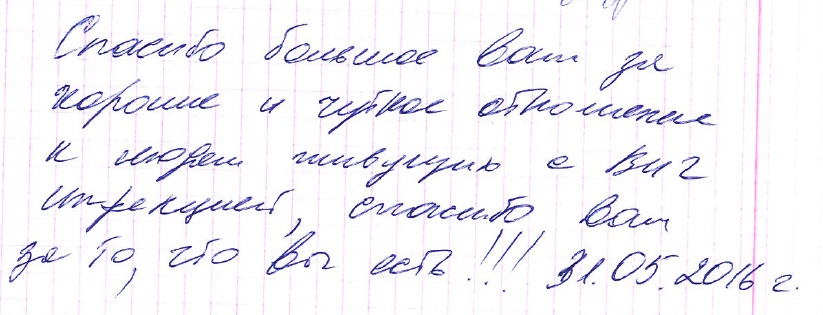 Спасибо большое вам за
хорошие и чуткое отношение
к людям живущих с ВИЧ
инфекцией, спасибо вам
за то, что вы есть!!! 31.05.2016 г.